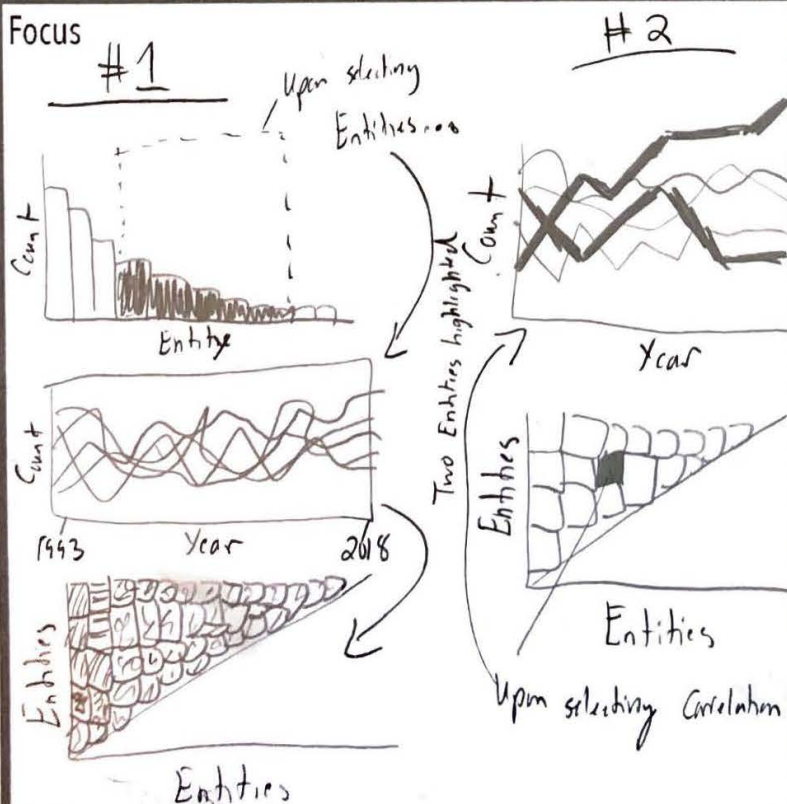 Focus
#1
Upon selecting
Entities...
Count
Entity
Count
1993
Year
2018
Entities
Entities
#2
Count
Two Entities highlighted
Year
Entities
Entities
Upon selecting Correlation